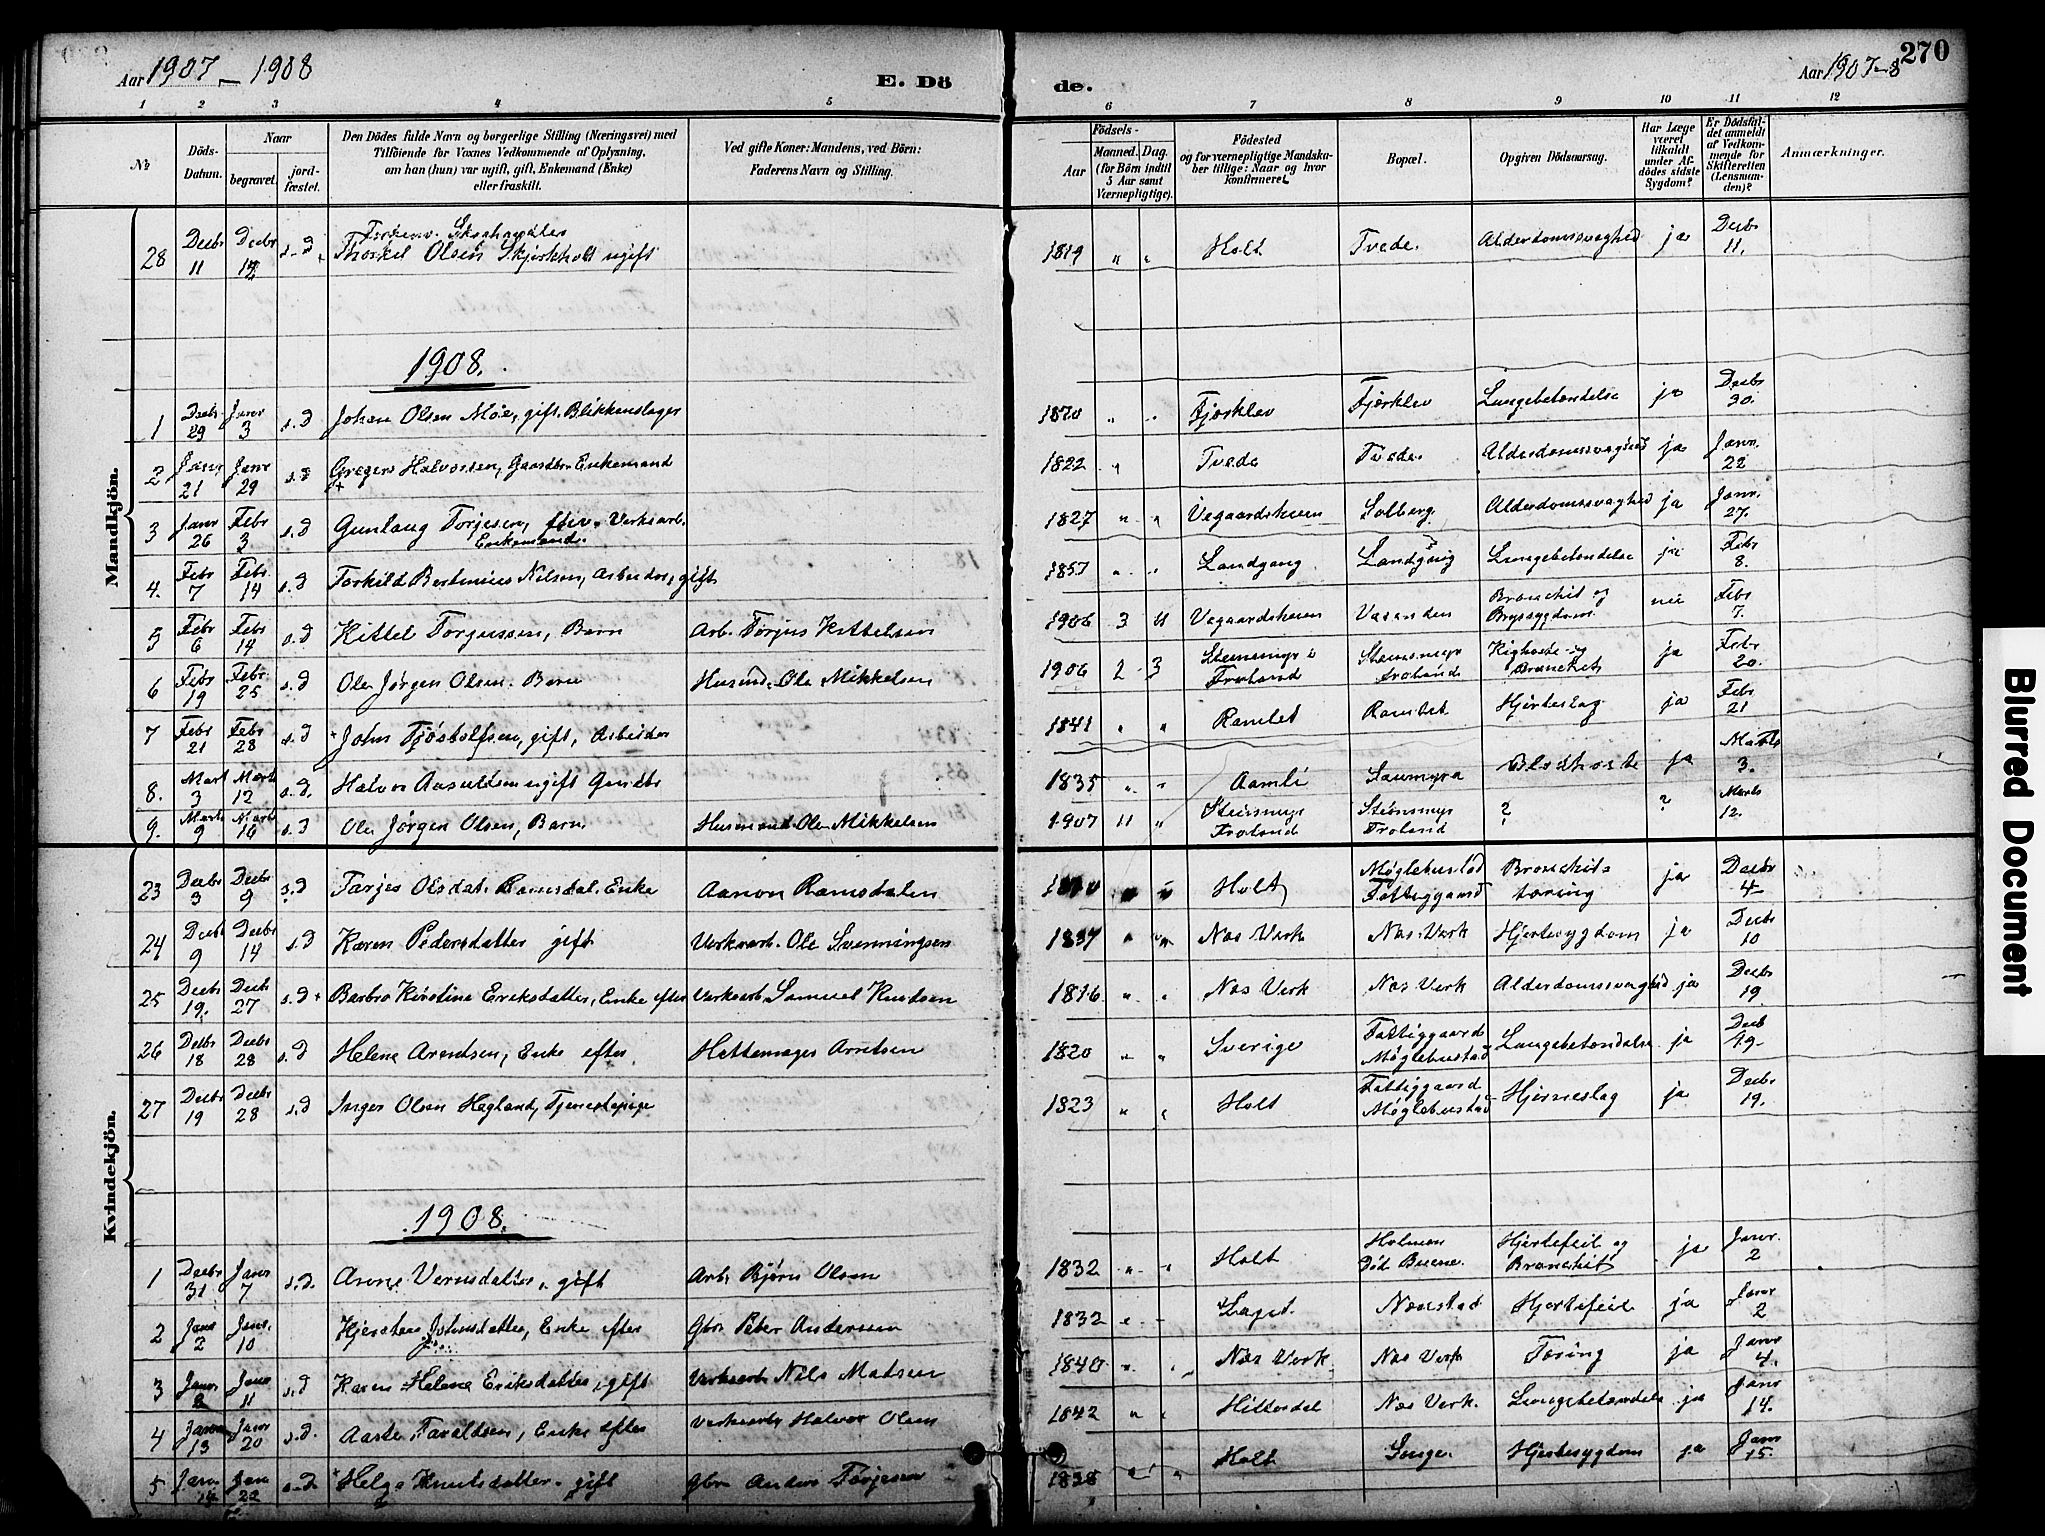 Aar 1907 - 1908
E. Dö
de.
Aar 1907-8
270
1 2 3 4 5 6 7 8 9 10 11 12
№
Döds-Datum.
Naar
begravet.
jordfæstet.
Den Dödes fulde Navn og borgerlige Stilling (Næringsvei) med
Tilföiende for Voxnes Vedkommende af Oplysning,
om han (hun) var ugift, gift, Enkemand (Enke)
eller fraskilt.
Ved gifte Koner: Mandens, ved Börn:
Faderens Navn og Stilling.
Födsels-
Aar
Maaned. Dag.
(for Börn indtil
5 Aar samt
Værnepligtige).
Födested
og for værnepligtige Mandska-
ber tillige: Naar og hvor
konfirmeret
Bopæl.
Opgiven Dödsaarsag.
Har Læge
været
tilkaldt
under Af-
dödes sidste
Sygdom?
Er Dödsfal-
det anmeldt
af Vedkom-
mende for
Skifteretten
(Lensman-
den)?
Anmærkninger.
Mandkjön.
28 Decbr 11 Decbr s.D Thorkil Olsen ugift 1819 " " Holt Tvede. Alderdomssvaghed ja Decbr 11.
1908.
1 Decbr 29 Janr 3 s.D Johan Olsen Moe, gift. Blikkenslager 1870 " " Fjærklev Fjærklev Lungebetændelse ja Decbr 30.
2 Janr 21 Janr 29 s.D Gregers Halvorsen, Gaardbr. Enkemand 1822 " Tvede Tvede. Alderdomssvaghed ja Janr. 22
3 Janr 26 Febr 3 s.D Gunlaug Torjesen, Verksarb. Enkemand. 1827 " " Vegaardsheien Solberg. Alderdomssvaghed ja Janr. 27.
4. Febr 7 Febr. 14 s.D Torkild Bertinius Nilsen, Arbeider, gift 1857 " " Landgang Landgang Lungebetændelse ja Febr 8.
5 Febr 6 Febr 14 s.D Kittel Torjussen, Barn Arb. Torjus Kittelsen 1906 3 11 Vegaardsheien Vasenden Bronchit og Brystsygdom. nei Febr 7.
6 Febr 19 Febr. 25 s.D Ole Jørgen Olsen. Barn Husmd. Ole Mikkelsen 1906 2 3 Stensmyr i Froland Stensmyr Froland Kighoste og Bronchit ja Febr 20.
7 Febr 21 Febr 28 s.D John Tjøstolfsen, gift, Arbeider 1841 " " Ramlet Ramlet. ja Febr 21
8. Mart 3 Marts 12 s.D. Halvor ugift 1835 " " Aamli Blodhoste ja Marts 3.
9. Marts 9 Marts s.D Ole Jørgen Olsen, Barn. Husmand Ole Mikkelsen 1907 11 " Stensmyr Froland Stensmyr Froland ? ? Marts 12.
Kvindekjön.
23 Decbr 3 Decbr 9 s.D Olsdat. Ramsdal. Enke Aanon Ramsdalen " Holt Møglebustad Fattiggaard Bronchit tæring ja Decbr 4
24 Decbr 9 Decbr 14 s.D Karen Pedersdatter gift Verksarb. Ole Svenningsen 1837 " " Næs Verk Næs Verk Hjertesygdom ja Decbr 10
25 Decbr 19. Decbr 27 s.D Barbro Kirstine Eriksdatter, Enke efter Verksarb Samuel Knudsen 1816 " " Næs Verk Næs Verk Alderdomssvaghed ja Decbr 19
26 Decbr 18 Decbr 28 s.D Helene Arentsen, Enke efter Hattemager Arntsen 1820 " " Sverige Fattiggaard Møglebustad Lungebetændelse ja Decb 19.
27 Decbr 19 Decbr 28 s.D Inger Olsen Hegland, Tjenestepige 1823 " " Holt Fattiggaard Møglebustad Hjerneslag ja Decbr 19.
1908.
1 Decbr 31 Janr 7 s.D. Anne gift Arb. Bjørn Olsen 1832 " " Holt Holmen Hjertefeil og Bronchit ja Janr. 2
2 Janr 2 Janr. 10 Johnsdatter, Enke efter Gbr. Peter Andersen 1832 " Laget. Næsstad Hjertefeil ja Janr 2
3 Janr Janr 11 s.D Karen Helene Eriksdatter, gift Verksarb Nils Matsen 1840 " " Næs Verk Næs Verk Tæring ja Janr 4.
4 Janr 13 Janr 20 s.D. Aaste Taraldsen, Enke efter Verksarb Halvor Olsen 1842 " " Hitterdal Næs Verk. Lungebetændelse ja Janr 14.
5 Janr. 14 Jan 22 s.D Helge Knutsdatter. gift Gbr Anders Torjesen 1838 " " Holt Songe. Hjertesygdom ja Janr 15.
Blurred Document